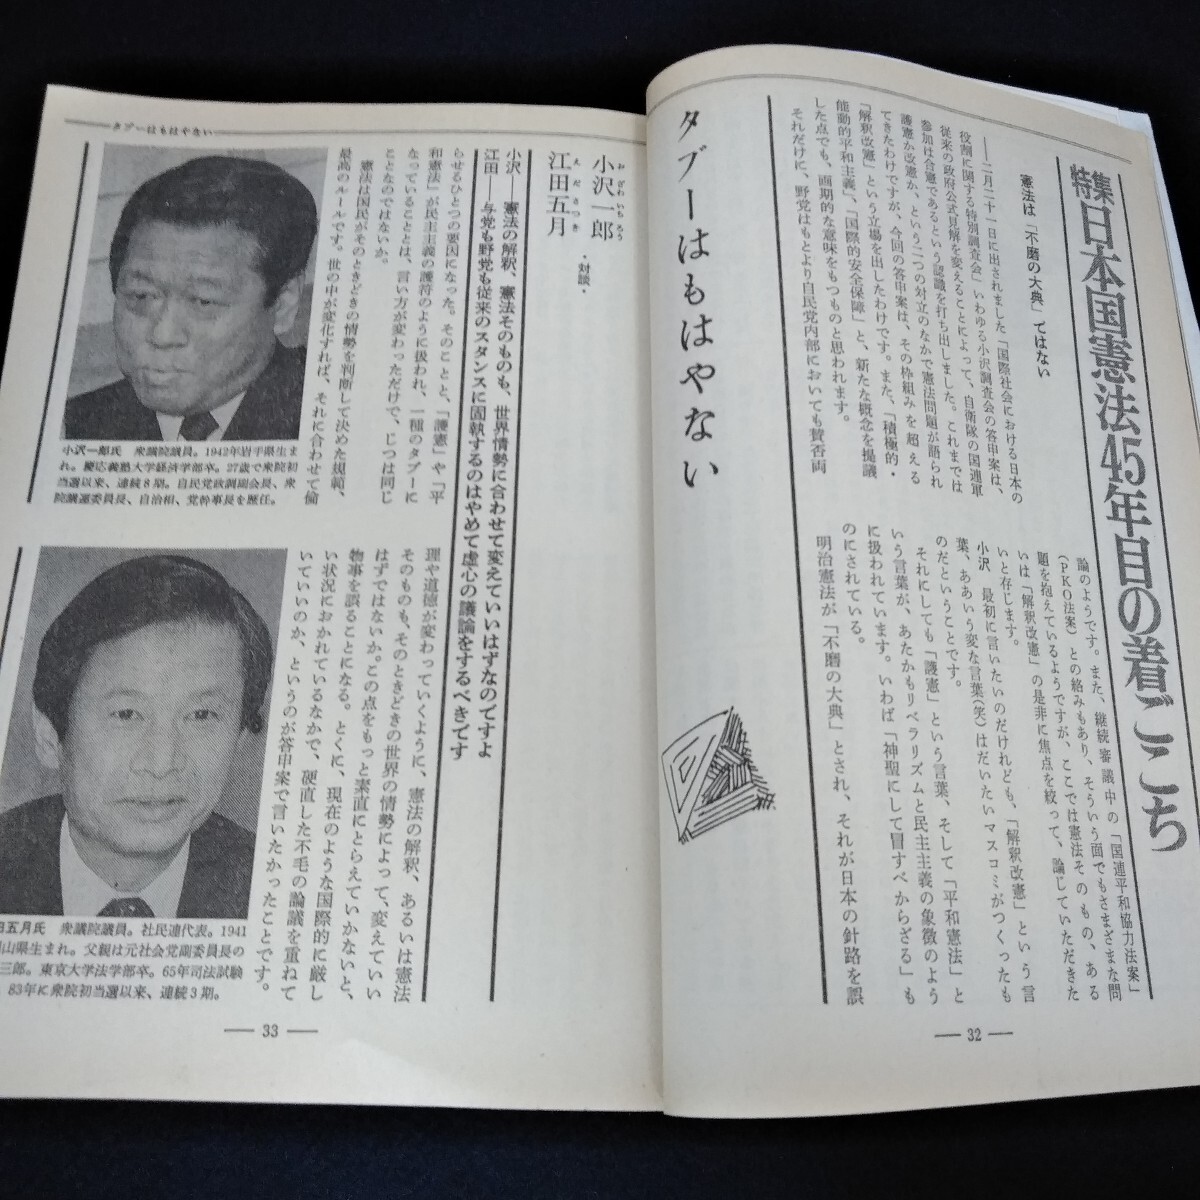 特集
日本国憲法45年目の着ごこち
憲法は「不磨の大典」ではない
――二月二十一日に出されました「国際社会における日本の
役割に関する特別調査会」いわゆる小沢調査会の答申案は、
従来の政府公式見解を変えることによって、自衛隊の国連軍
参加は合憲であるという認識を打ち出しました。これまでは
護憲か改憲か、という二つの対立のなかで憲法問題が語られ
てきたわけですが、今回の答申案は、その枠組みを超える
「解釈改憲」という立場を出したわけです。また、「積極的・
能動的平和主義」、「国際的安全保障」と、新たな概念を提議
した点でも、画期的な意味をもつものと思われます。
それだけに、野党はもとより自民党内部においても賛否両
論のようです。また、継続審議中の「国連平和協力法案」
(PKO法案)との絡みもあり、そういう面でもさまざまな問
題を抱えているようですが、ここでは憲法そのもの、ある
いは「解釈改憲」の是非に焦点を絞って、論じていただきた
いと存じます。
小沢 最初に言いたいのだけれども、「解釈改憲」という言
葉、ああいう変な言葉(笑)はだいたいマスコミがつくったも
のだということです。
それにしても「護憲」という言葉、そして「平和憲法」と
いう言葉が、あたかもリベラリズムと民主主義の象徴のよう
に扱われています。いわば「神聖にして冒すべからざる」も
のにされている。
明治憲法が「不磨の大典」とされ、それが日本の針路を誤
タブーはもはやない
― 32 ―
タブーはもはやない
小沢一郎
おざわいちろう
江田五月
えださつき
・対談・
小沢――憲法の解釈、憲法そのものも、世界情勢に合わせて変えていいはずなのですよ
江田――与党も野党も従来のスタンスに固執するのはやめて虚心の議論をするべきです
らせるひとつの要因になった。そのことと、「護憲」や「平
和憲法」が民主主義の護符のように扱われ、一種のタブーに
なっていることとは、言い方が変わっただけで、じつは同じ
ことなのではないか。
憲法は国民がそのときどきの情勢を判断して決めた規範、
最高のルールです。世の中が変化すれば、それに合わせて倫
理や道徳が変わっていくように、憲法の解釈、あるいは憲法
そのものも、そのときどきの世界の情勢によって、変えていい
はずではないか。この点をもっと素直にとらえていかないと、
物事を誤ることになる。とくに、現在のような国際的に厳し
い状況におかれているなかで、硬直した不毛の論議を重ねて
いていいのか、というのが答申案で言いたかったことです。
小沢一郎氏 衆議院議員。1942年岩手県生ま
れ。慶応義塾大学経済学部卒。27歳で衆院初
当選以来、連続8期。自民党政調副会長、衆
院議運委員長、自治相、党幹事長を歴任。
田五月氏 衆議院議員。社民連代表。1941
山県生まれ。父親は元社会党副委員長の
三郎。東京大学法学部卒。65年司法試験
83年に衆院初当選以来、連続3期。
― 33 ―